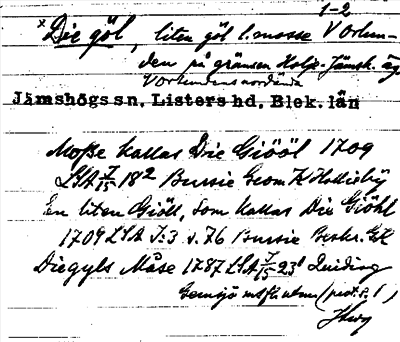 1-2
× Die göl, liten göl l. mosse V Orlun-
den på gränsen Holje-Jämsh. äg.
V Orlundens nordända
Jämshögs sn, Listers hd, Blek. län
Moße kallas Die Giööl 1709
LSA J/15 18² Bussie Geom K Hallisiöÿ
En liten Giöll, som kallas Die Giöhl
1709 LSA J:3 s. 76 Bussie Beskr.
Diegyls Måse 1787 LSA J/15 23¹ Quiding
Gemsjö utfl. utm (prot. s. 1)